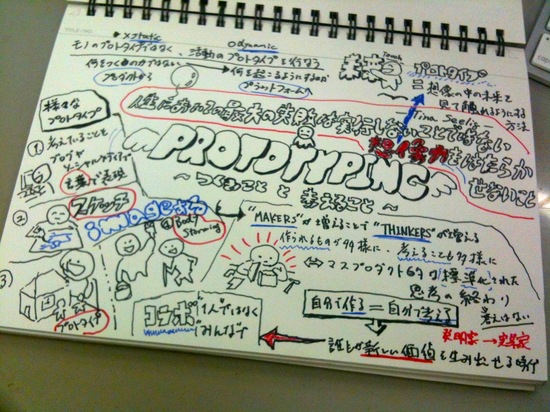 ×static
○dynamic
モノのプロトタイプではなく、活動のプロトタイプを行なう
何をつくるのかではない
→何を起こるようにするか
プロダクトから
プラットフォームへ
未来を
Touch
プロトタイプ
=想像の中の未来を
見て触れるようにする
方法
Tina Seelig
人生においての最大の失敗は実行しないことではない
想像力をはたらか
せないこと
PROTOTYPING
〜つくること と 考えること〜
様々な
プロトタイプ
① 考えていることを
ブログや
ソーシャルメディアで
言葉で表現
② スケッチ
image
④ Body
Storming
③
プロトタイプ
"MAKERS"が増えることで"THINKERS"が増える
作られるものが多様に、考えることも多様に
⇔マスプロダクト
標準化された
思考の終わり
自分で作る=自分で考える
コラボ
1人ではなく
みんなで
発明家→実業家
誰もが新しい価値を生み出せる時代